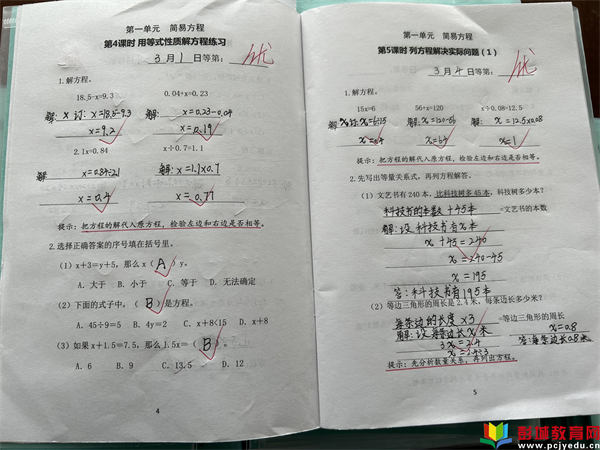 第一单元 简易方程
第4课时 用等式性质解方程练习
3月1日等第： 优
1.解方程。
18.5-x=9.3 0.04+x=0.23
x=18.5-9.3 解：x=0.23-0.04
x=9.2 x=0.19
2.1x=0.84 x÷0.7=1.1
解 x=0.84÷2.1 解：x=1.1×0.7
x=0.4 x=0.77
提示：把方程的解代入原方程，检验左边和右边是否相等。
2.选择正确答案的序号填在括号里。
（1）x+3=y+5，那么 x（ A ）y。
A. 大于 B. 小于 C. 等于 D. 无法确定
（2）下面的式子中，（ B ）是方程。
A. 45÷9=5 B. 4y=2 C. x+8<15 D. x+8
（3）如果 x+1.5=7.5，那么 1.5x=（ B ）。
A. 6 B. 9 C. 13.5 D. 12
4
第一单元 简易方程
第5课时 列方程解决实际问题（1）
3月4日等第： 优
1.解方程。
15x=6 56+x=120 x÷0.08=12.5
解：x=6÷15 解：x=120-56 解：x=12.5×0.08
x=0.4 x=64 x=1
提示：把方程的解代入原方程，检验左边和右边是否相等。
2.先写出等量关系式，再列方程解答。
（1）文艺书有 240 本，比科技书多 45 本，科技书多少本？
科技书的本数+45本=文艺书的本数
解：设科技书有x本
x+45=240
x=240-45
x=195
答：科技书有195本
（2）等边三角形的周长是 2.4 米，每条边长多少米？
每条边的长度×3=等边三角形的周长
解：设每条边长x米 x=0.8
3x=2.4 答：每条边长0.8米
x=2.4÷3
提示：先分析数量关系，再列出方程。
5
彭城教育网
www.pcjyedu.cn